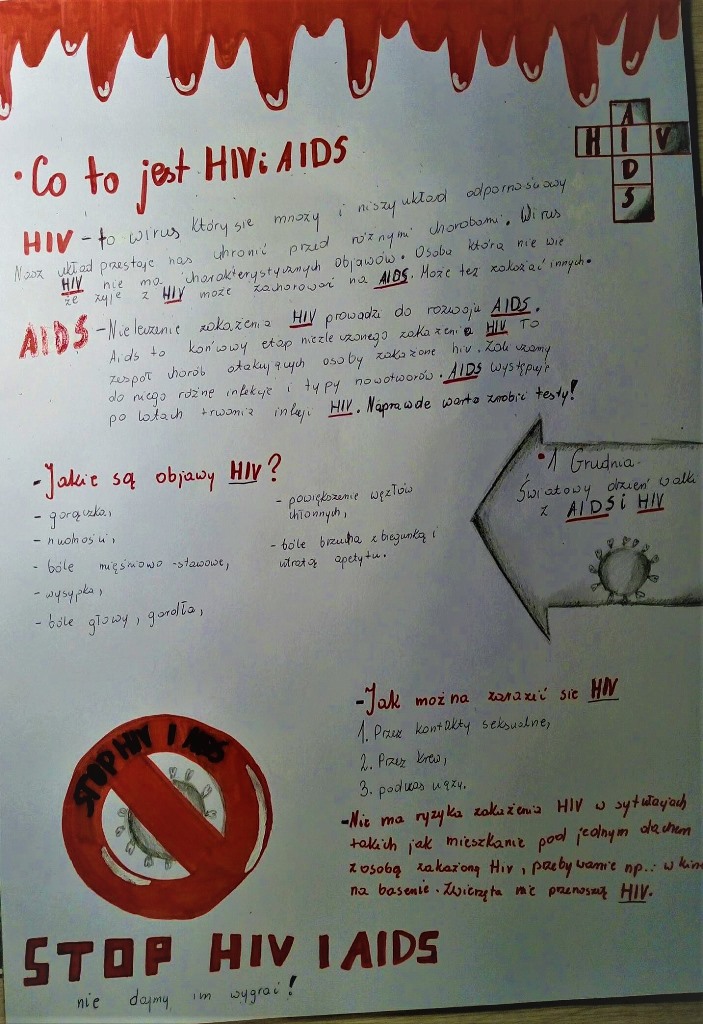 A
H I V
D
S
• Co to jest HIV i AIDS
HIV - to wirus który sie mnoży i niszy układ odpornościowy
Nasz układ przestaje nas chronić przed różnymi chorobami. Wirus
HIV nie ma charakterystycznych objawów. Osoba która nie wie
że żyje z HIV może zachorować na AIDS. Może też zakażać innych.
AIDS - Nieleczenie zakażenia HIV prowadzi do rozwoju AIDS.
Aids to końcowy etap nieleczonego zakażenia HIV To
zespół chorób atakujących osoby zakażone hiv. Zaliczamy
do niego różne infekcje i typy nowotworów. AIDS występuje
po latach trwania infekcji HIV. Naprawde warto zrobić testy!
- Jakie są objawy HIV?
- gorączka,
- nudności,
- bóle mięśniowo-stawowe,
- wysypka,
- bóle głowy, gardła,
- powiększenie węzłów
chłonnych,
- bóle brzucha z biegunką i
utratą apetytu.
• 1 Grudnia
Światowy dzień walki
z AIDS i HIV
- Jak można zarazić sie HIV
1. Przez kontakty seksualne,
2. Przez krew,
3. podczas ciąży.
- Nie ma ryzyka zakażenia HIV w sytuacjach
takich jak mieszkanie pod jednym dachem
z osobą zakażoną Hiv, przebywanie np.: w kinie
na basenie. Zwierzęta nie przenoszą HIV.
STOP HIV I AIDS
STOP HIV I AIDS
nie dajmy im wygrać!